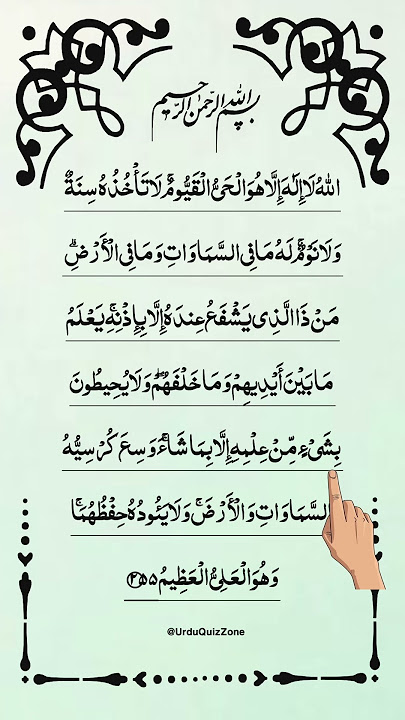 بسم الله الرحمن الرحيم
اللهُ لَا إِلَٰهَ إِلَّا هُوَ الْحَيُّ الْقَيُّومُ ۚ لَا تَأْخُذُهُ سِنَةٌ
وَلَا نَوْمٌ ۚ لَهُ مَا فِي السَّمَاوَاتِ وَمَا فِي الْأَرْضِ ۗ
مَنْ ذَا الَّذِي يَشْفَعُ عِندَهُ إِلَّا بِإِذْنِهِ ۚ يَعْلَمُ
مَا بَيْنَ أَيْدِيهِمْ وَمَا خَلْفَهُمْ ۖ وَلَا يُحِيطُونَ
بِشَيْءٍ مِّنْ عِلْمِهِ إِلَّا بِمَا شَاءَ ۚ وَسِعَ كُرْسِيُّهُ
السَّمَاوَاتِ وَالْأَرْضَ ۖ وَلَا يَئُودُهُ حِفْظُهُمَا ۚ
وَهُوَ الْعَلِيُّ الْعَظِيمُ ۲۵۵
@UrduQuizZone